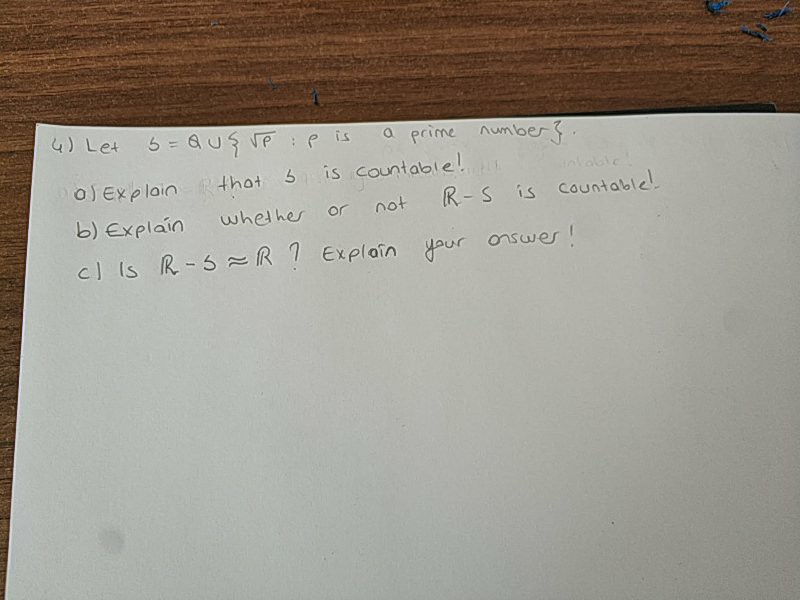 4) Let S = Q ∪ { √p : p is a prime number}.
a) Explain that S is countable!
b) Explain whether or not ℝ - S is countable!
c) Is ℝ - S ≈ ℝ ? Explain your answer!